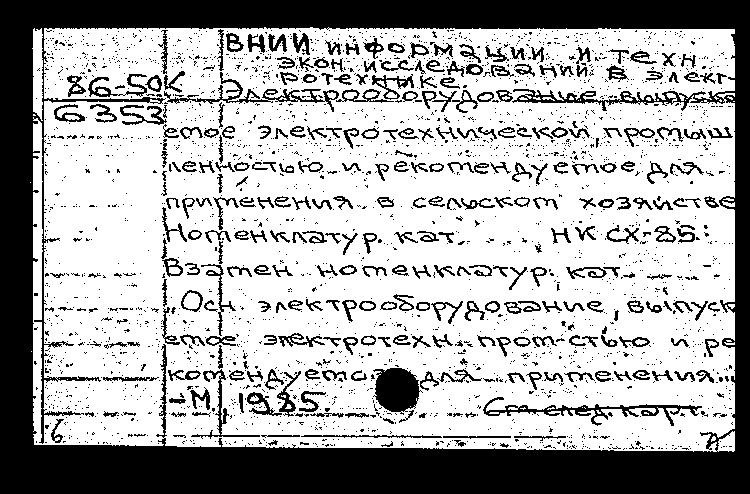 ВНИИ информации и техн.
экон. исследований в элект-
86-50К ротехнике.
Электрооборудование, выпуска
6353
емое электротехнической промыш
ленностью и рекомендуемое для
применения в сельском хозяйстве
Номенклатур. кат. НК СХ-85:
Взамен номенклатур. кат.
"Осн. электрооборудование, выпуск
емое электротехн. пром-стью и ре
комендуемое для применения..."
-М., 1985.
См след. карт.
б